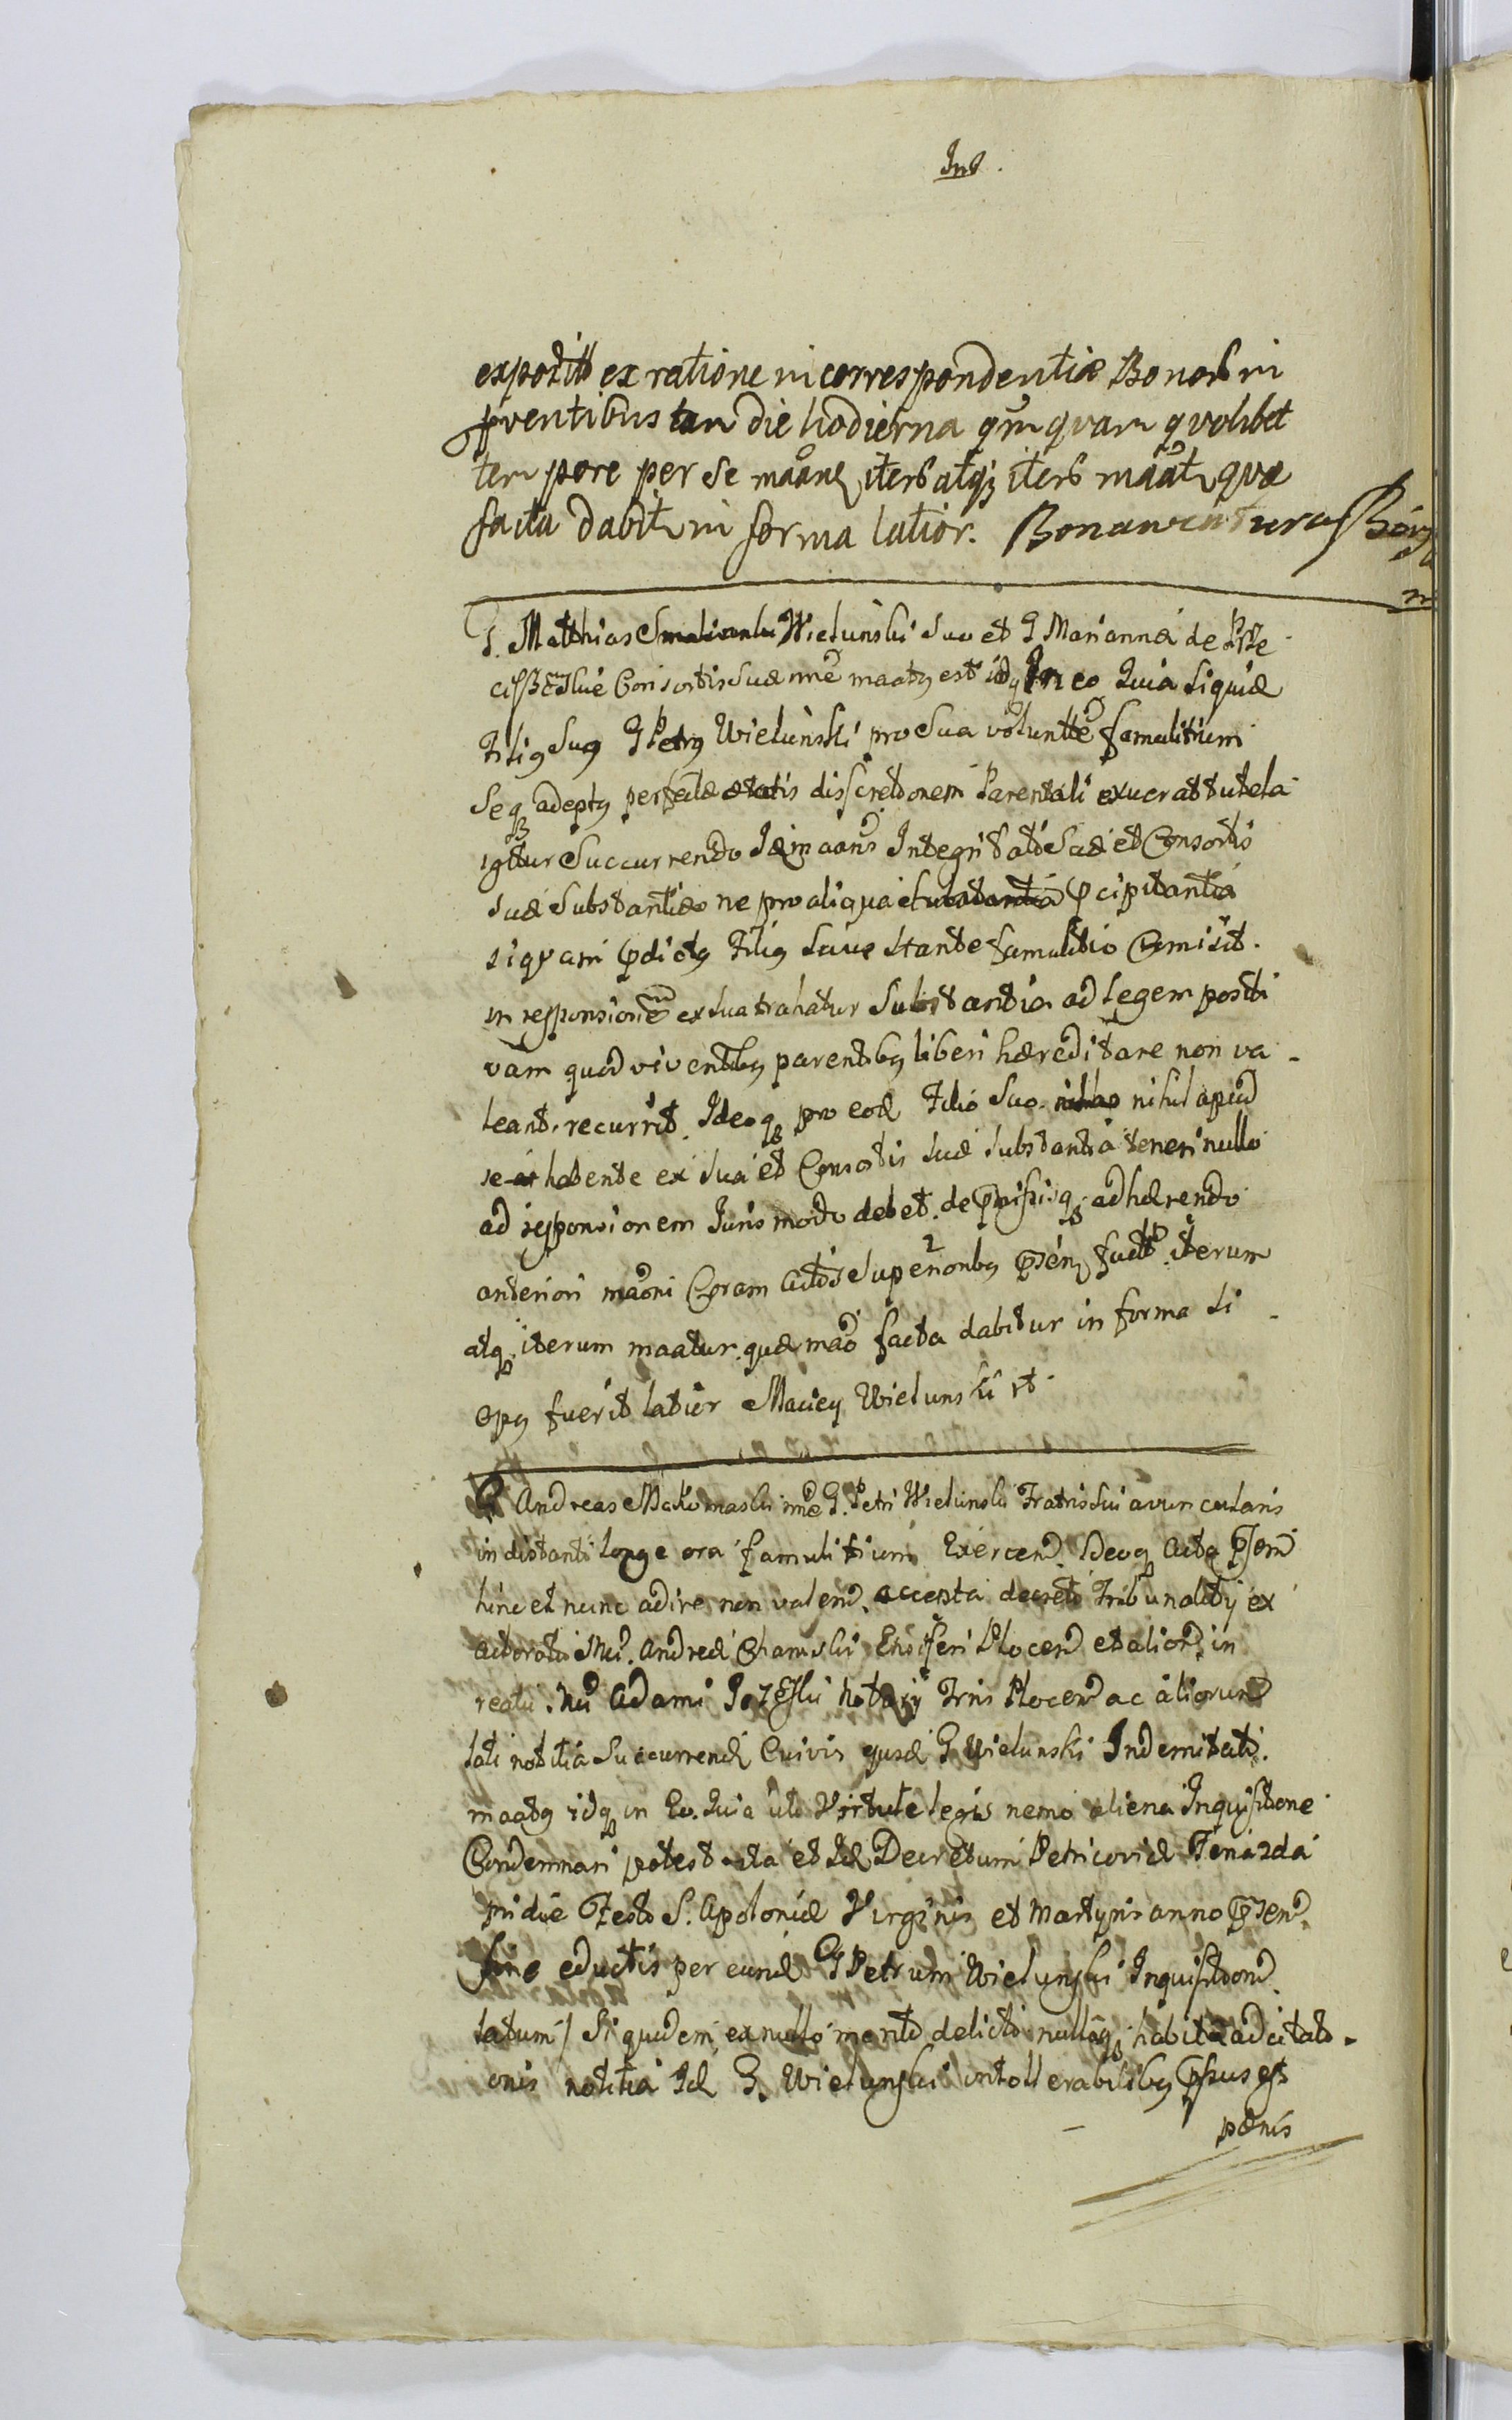 Ind.
expositt ex ratione in correspondentiæ Bonorb in
pventibus tan die hodierna qm quam quolibet
tempore per se maane iterb atq iterb maat quæ
facta dabit in forma latior. Bonaventura
G. Matthias Wielunski Suo et G Marianna de
Consortis Suæ nne maatg est idq In eo Quia Siquid
Filig Sug G Petrg Wielunski pro Sua voluntte famulitium
Seqz adeptg perfectæ ætatis discretionem Parentali exuerat tutela
igttur Succurrendo Idem aans Integritati Suæ et Consortis
Suæ Substantiæ ne pro aliqua pcipitantia
siquam pdictg Filig Suus Stante famulitio Comisit.
in responsione ex Sua trahatur Substantia ad Legem positi
vam quod viventibg parentibg liberi hæreditare non va-
leant. recurrit. Ideoqz pro eod Filio Suo nihil apud
se habente ex Sua et Consortis Suæ Substantia teneri nullo
ad responsionem Juris modo debet. de pmissisqz adhærendo
anteriori maoni Coram Actis Superionbg psen factt. iterum
atqz iterum maatur. quæ mao facta dabitur in forma Si
Opg fuerit latior Maciey Wielunski
G Andreas Makomaski nne G. Petri Wielunski Fratris Sui avuncularis
in distanti longe ora famulitium Exercen. Ideoqz Acta psen
hinc et nunc adire non valen. accepta decreti Tribunalitij ex
actoratu Mci. Andreæ Chamski Ensiferi Plocen et alior. in
reatu. Adami notarij Trris Plocen ac aliorum
lati notitia Succurrend Cuivis ejusd G Wielunski Indemnitati.
maatg idqz in Eo. Quia uti Virtute legis nemo aliena Inquisitone
Condemnari potest ita et Id Decretum Petricoviæ
pridie Festi S. Apoloniæ Virginis et Martyris anno psen.
sine eductis per eund G Petrum Wielunski Inquisition.
latum/ Siquidem, ex nullo merito delicto nullaqz habita ad citato-
onis notitia Id G. Wielunski intollerabilibg est
pænis